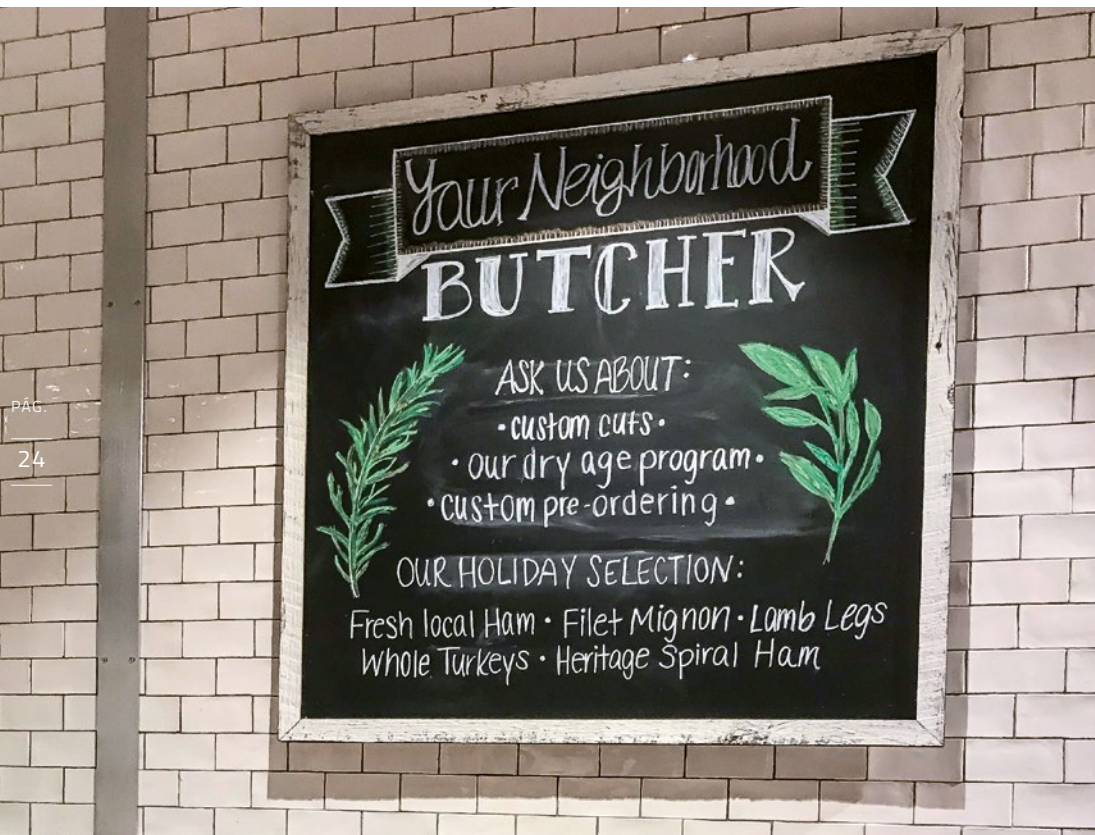 Your Neighborhood
BUTCHER
ASK US ABOUT:
• custom cuts •
• our dry age program •
• custom pre-ordering •
OUR HOLIDAY SELECTION:
Fresh local Ham • Filet Mignon • Lamb Legs
Whole Turkeys • Heritage Spiral Ham
PÁG.
24